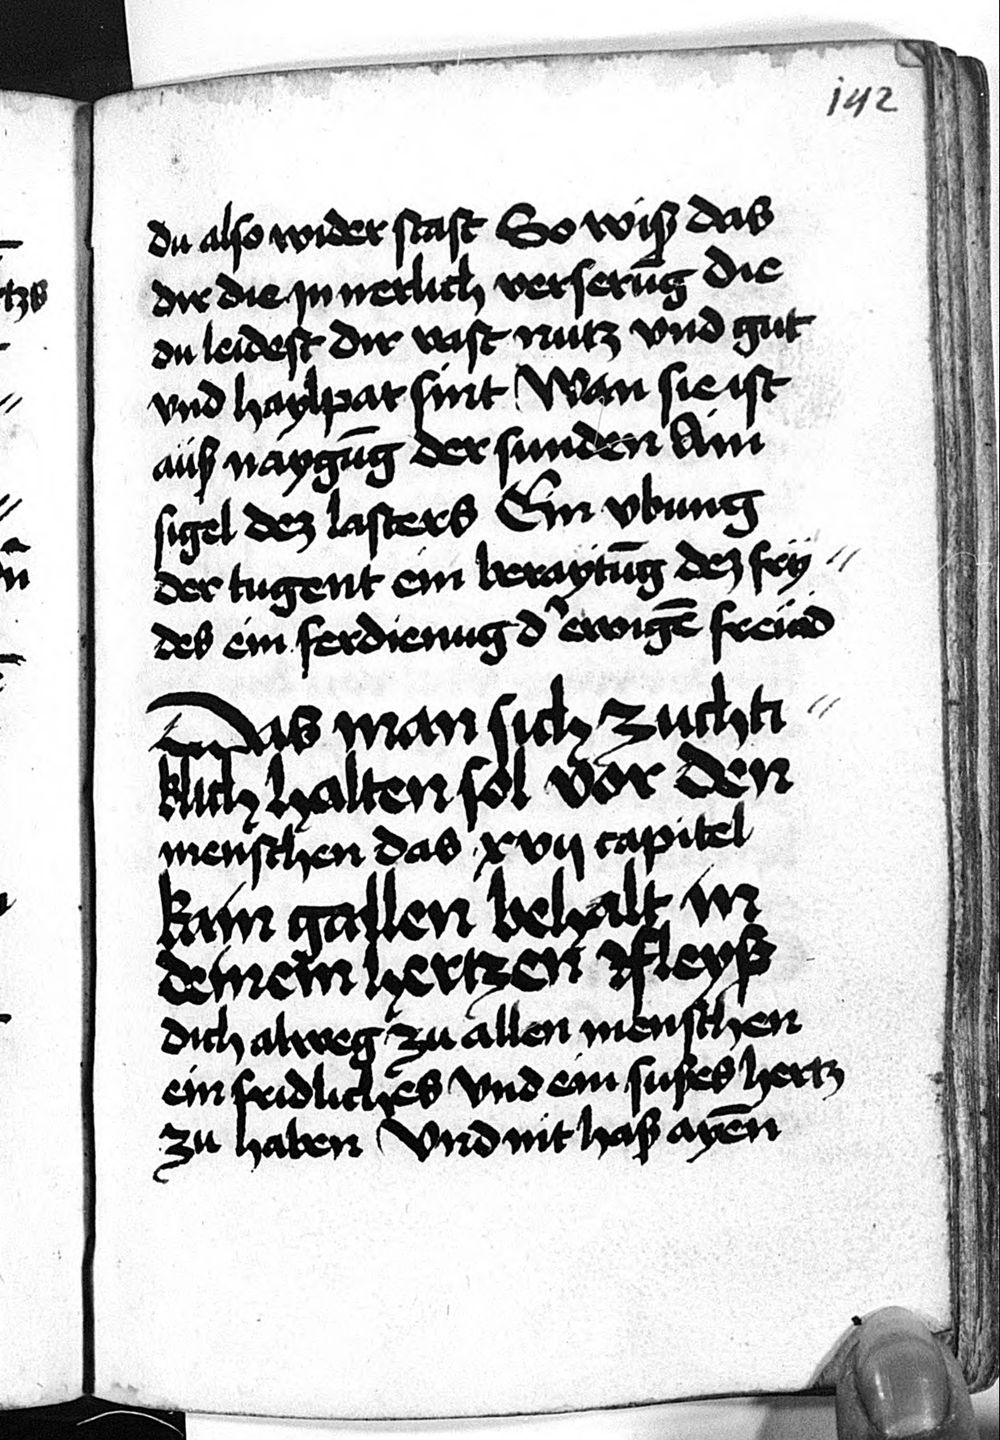 142
du also wider stast So wiß das
dir die jnnerlich verserūg die
du leidest dir vast nutz vnd gut
vnd haylpar sint Wan sie ist
auß naygūg der sunden Ain
sigel dez lasters Ein vbung
der tugent ein beraytūg dez fry //
des ein ferdienug d' ewigē freiad
Das man sich zuchti //
klich halten sol vor den
menschen das xvij capitel
kain gallen behalt in
deinem hertzen fleyß
dich alweg zu allen menschen
ein fridliches vnd ein sußes hertz
zu haben Vnd nit haß ayēn